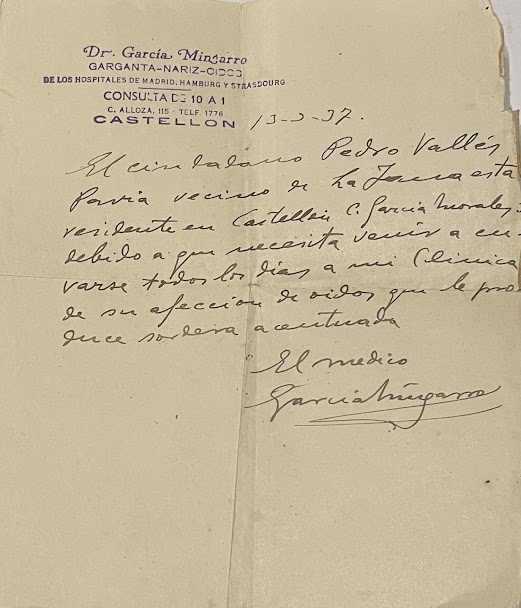 Dr. García Mingarro
GARGANTA-NARIZ-OIDOS
DE LOS HOSPITALES DE MADRID, HAMBURG Y STRASBOURG
CONSULTA DE 10 A 1
C. ALLOZA, 115 - TELF. 1776
CASTELLON
13-3-37.
El ciudadano Pedro Vallés
Pavia vecino de La Jana esta
residente en Castellón C. Garcia Morales
debido a que necesita venir a cu-
rarse todos los dias a mi Clinica
de su afeccion de oidos que le pro-
duce sordera acentuada
El medico
García Mingarro